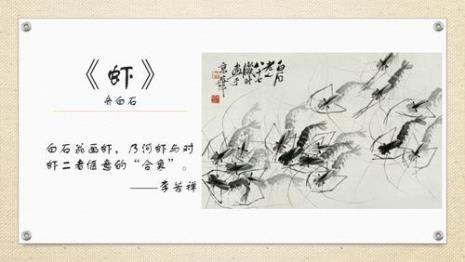 《虾》
齐白石
白石翁画虾，乃河虾与对
虾二者惬意的“合象”。
——李苦禅
白石
老人
八十七
岁时
画于
京华